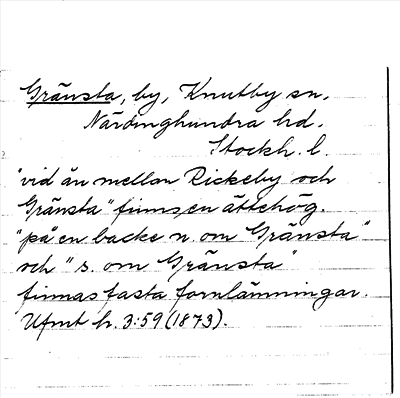 Gränsta, by, Knutby sn,
Närdinghundra hd.
Stockh. l.
"vid ån mellan Rickeby och
Gränsta" finns en ättehög.
"på en backe n. om Gränsta"
och "s. om Gränsta"
finnas fasta fornlämningar.
Ufmt h. 3:59 (1873).